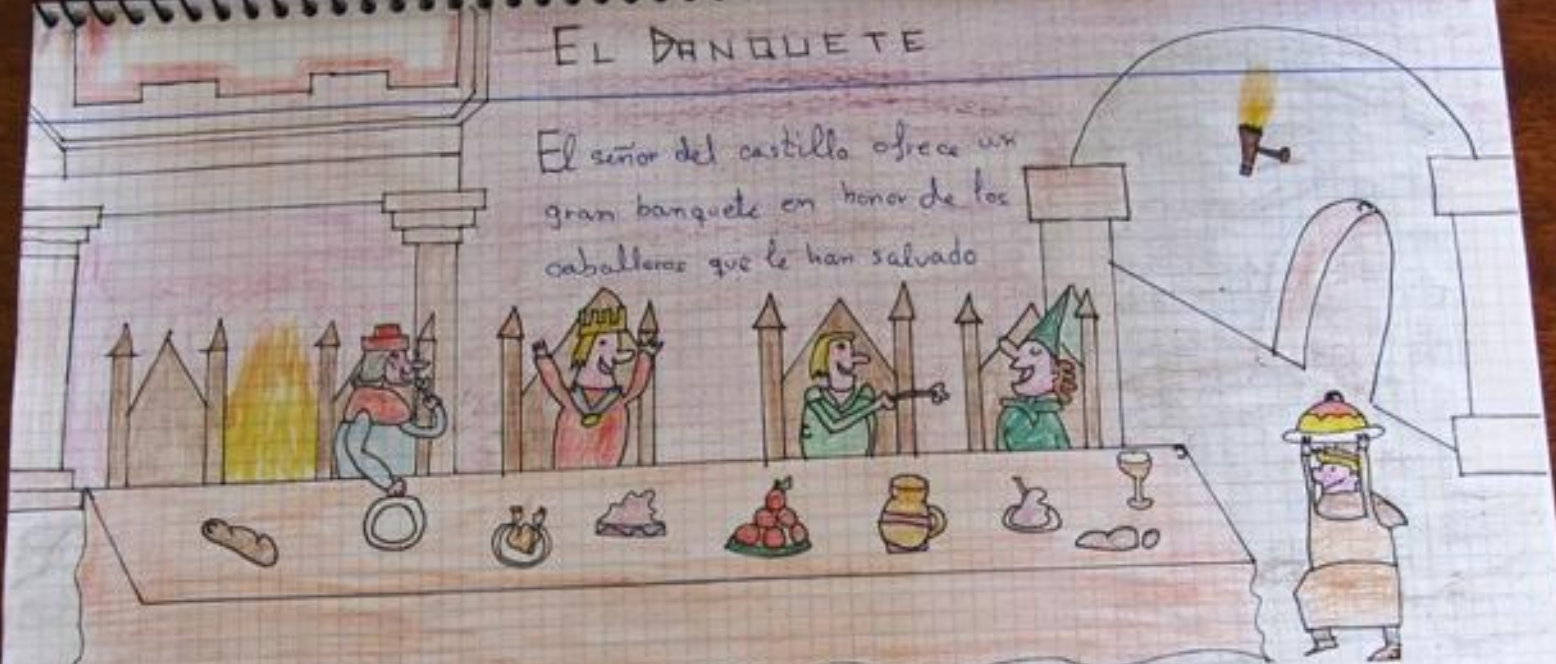 EL BANQUETE
El señor del castillo ofrece un
gran banquete en honor de los
caballeros que le han salvado